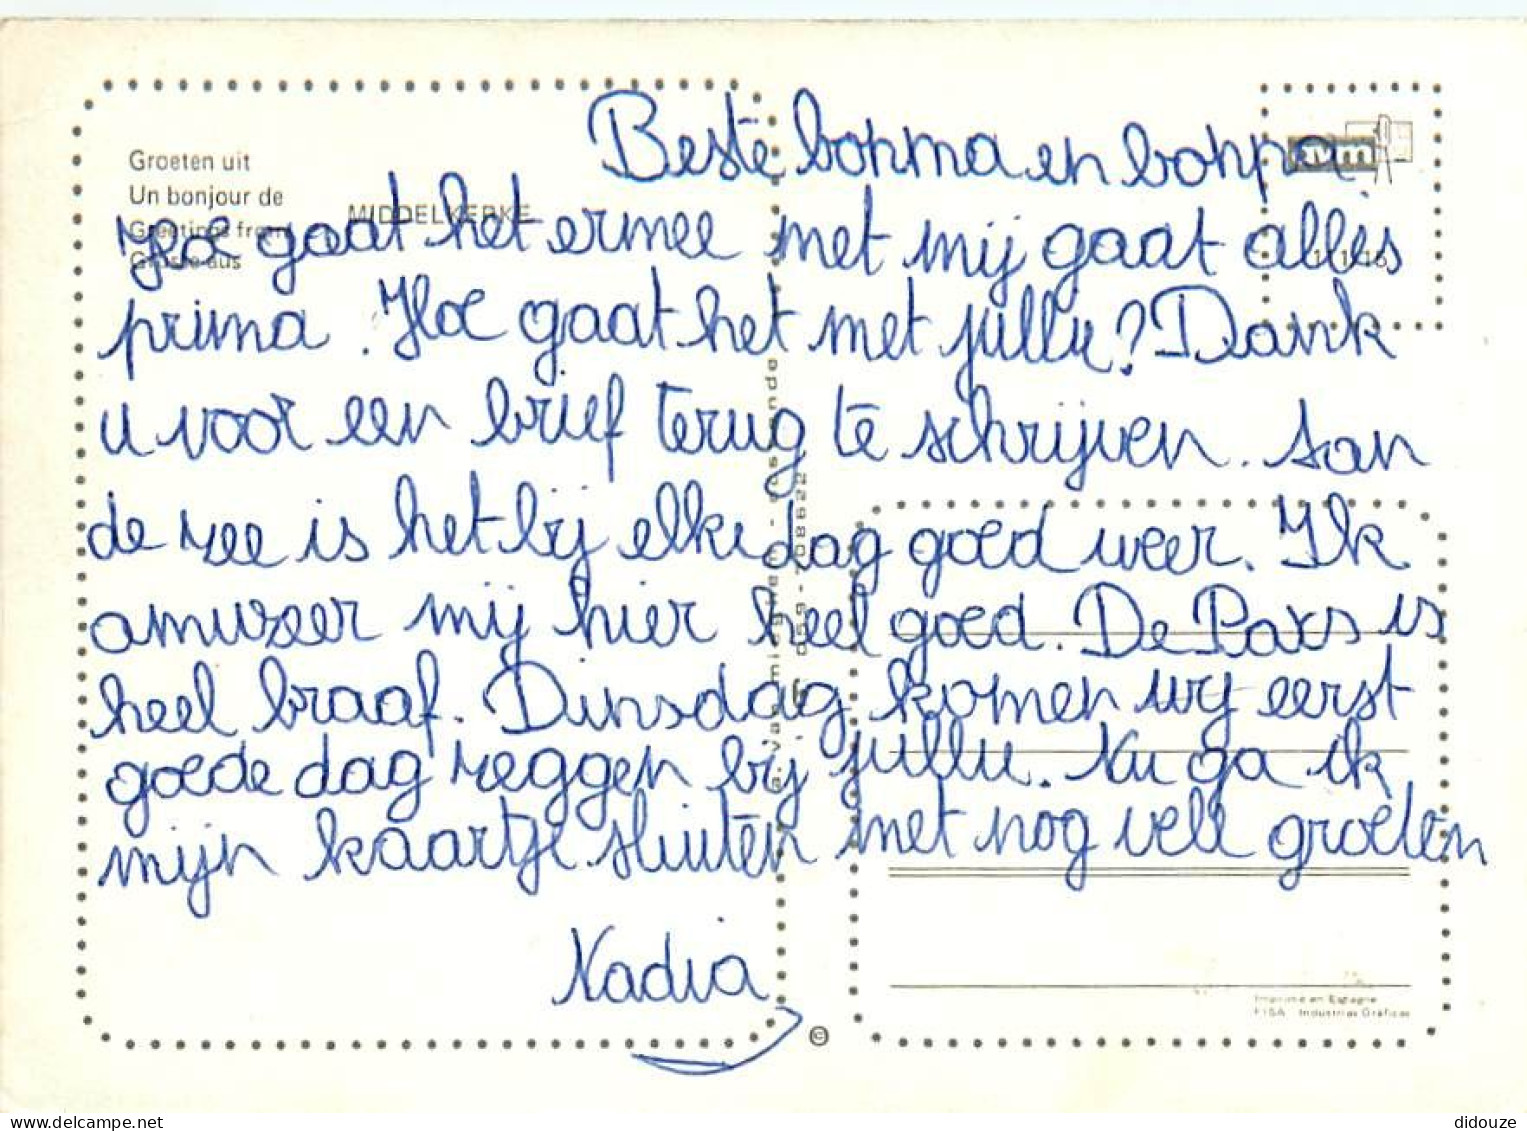 Groeten uit
Un bonjour de
Greetings from
Grüsse aus
MIDDELKERKE
Beste bonma en bonpa.
Hoe gaat het ermee met mij gaat alles
prima. Hoe gaat het met jullie? Dank
u voor een brief terug te schrijven. Aan
de zee is het bij elke dag goed weer. Ik
amuzeer mij hier heel goed. De Paxs is
heel braaf. Dinsdag komen wij eerst
goede dag zeggen bij jullie. Nu ga ik
mijn kaartje sluiten met nog veel groeten
Nadia
059-708622
©
Imprimé en Espagne
FISA Industrias Gráficas
didouze
delcampe.net